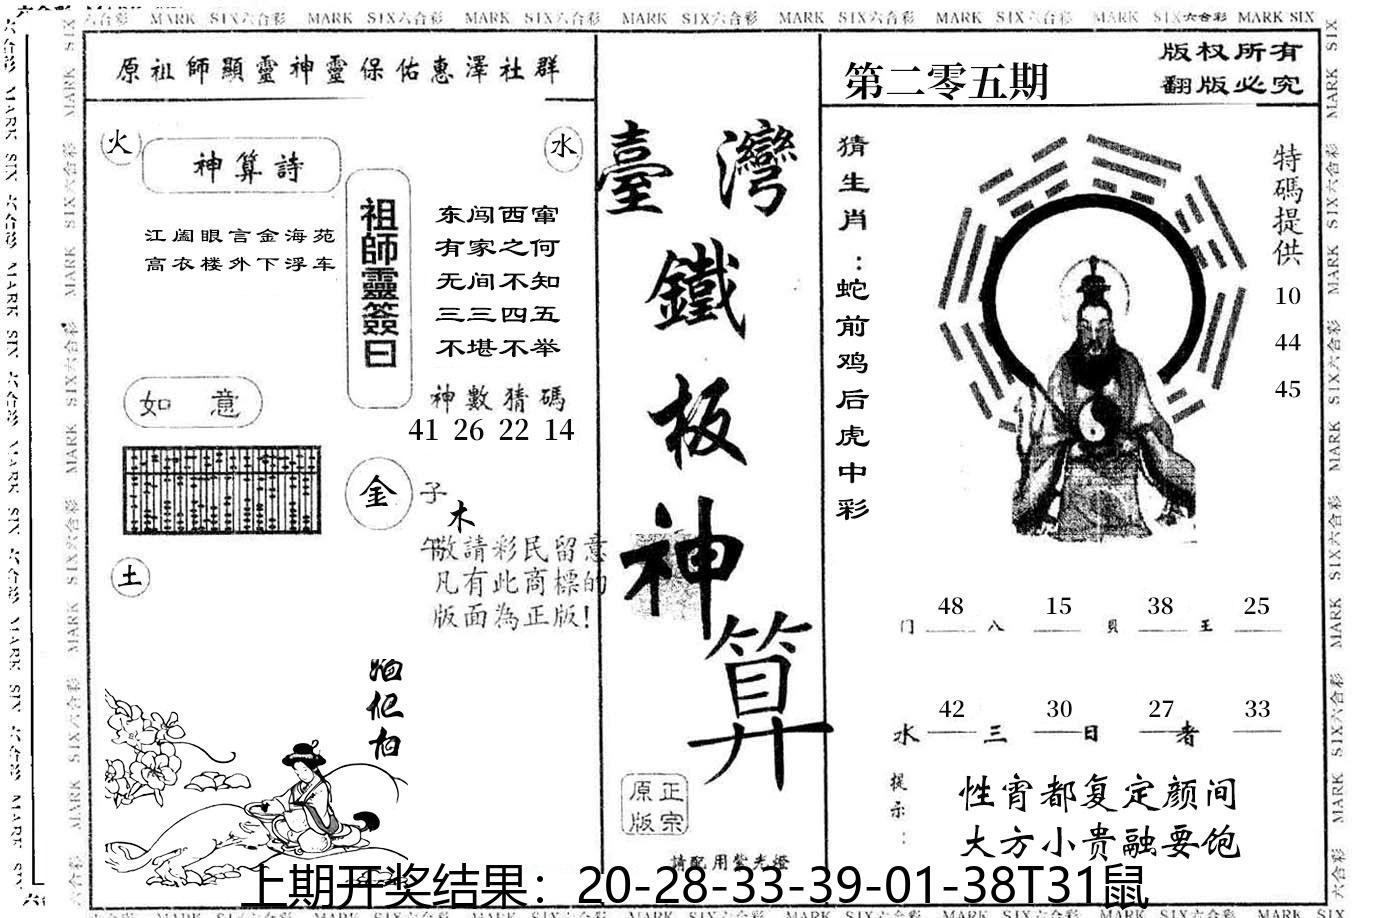 原祖師顯靈神靈保佑惠澤社群
火
水
神算詩
江阖眼言金海苑
高衣楼外下浮车
祖師靈簽曰
东闯西窜
有家之何
无间不知
三三四五
不堪不举
神數猜碼
41 26 22 14
如意
金
子
木
午
土
敬請彩民留意
凡有此商標的
版面為正版!
臺灣
鐵
板
神
算
正宗
原版
請配用紫光燈
第二零五期
版权所有
翻版必究
猜生肖：蛇前鸡后虎中彩
特碼提供
10
44
45
48 15 38 25
门 八 貝 王
42 30 27 33
水 三 日 者
提示：
性宵都复定颜间
大方小贵融要饱
上期开奖结果：20-28-33-39-01-38T31鼠
MARK SIX六合彩 MARK SIX六合彩 MARK SIX六合彩 MARK SIX六合彩 MARK SIX六合彩 MARK SIX六合彩 MARK SIX六合彩 MARK SIX